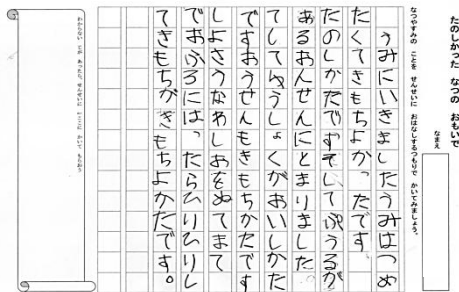 たのしかった なつの おもいで
なまえ
なつやすみの ことを せんせいに おはなしするつもりで かいてみましょう。
うみにいきましたうみはつめ
たくてきもちよかったです
たのしかたですそしてぷうるが
あるおんせんにとまりました。
てしてゆうしょくがおいしかた
ですおうせんもきもちかたです
しよさうなわしおをぬてまて
でおふろにはったらひりひりし
てきもちがきもちよかたです。
わからない じが あったら、せんせいに ここに かいて もらおう